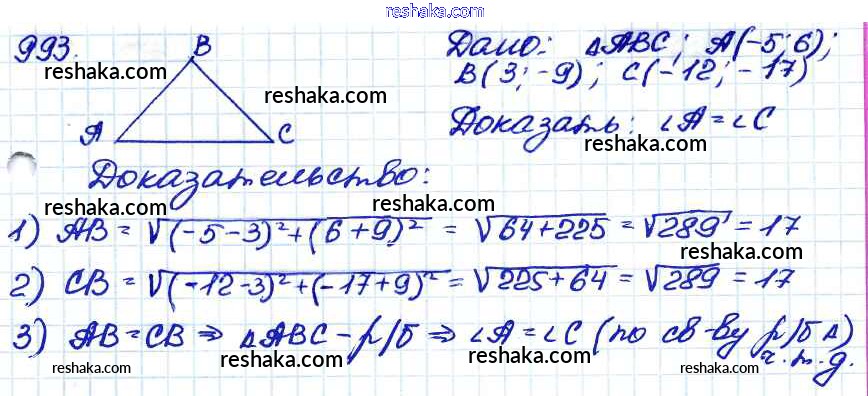 reshaka.com
993.
B
A
C
Дано: △ABC; A(-5;6);
B(3;-9); C(-12;-17)
reshaka.com
reshaka.com
Доказать: ∠A=∠C
reshaka.com
Доказательство:
reshaka.com
reshaka.com
1) AB = √(-5-3)²+(6+9)² = √64+225 = √289 = 17
reshaka.com
2) CB = √(-12-3)²+(-17+9)² = √225+64 = √289 = 17
reshaka.com
3) AB=CB ⇒ △ABC - р/б ⇒ ∠A=∠C (по св-ву р/б △)
ч.т.д.
reshaka.com
reshaka.com
reshaka.com